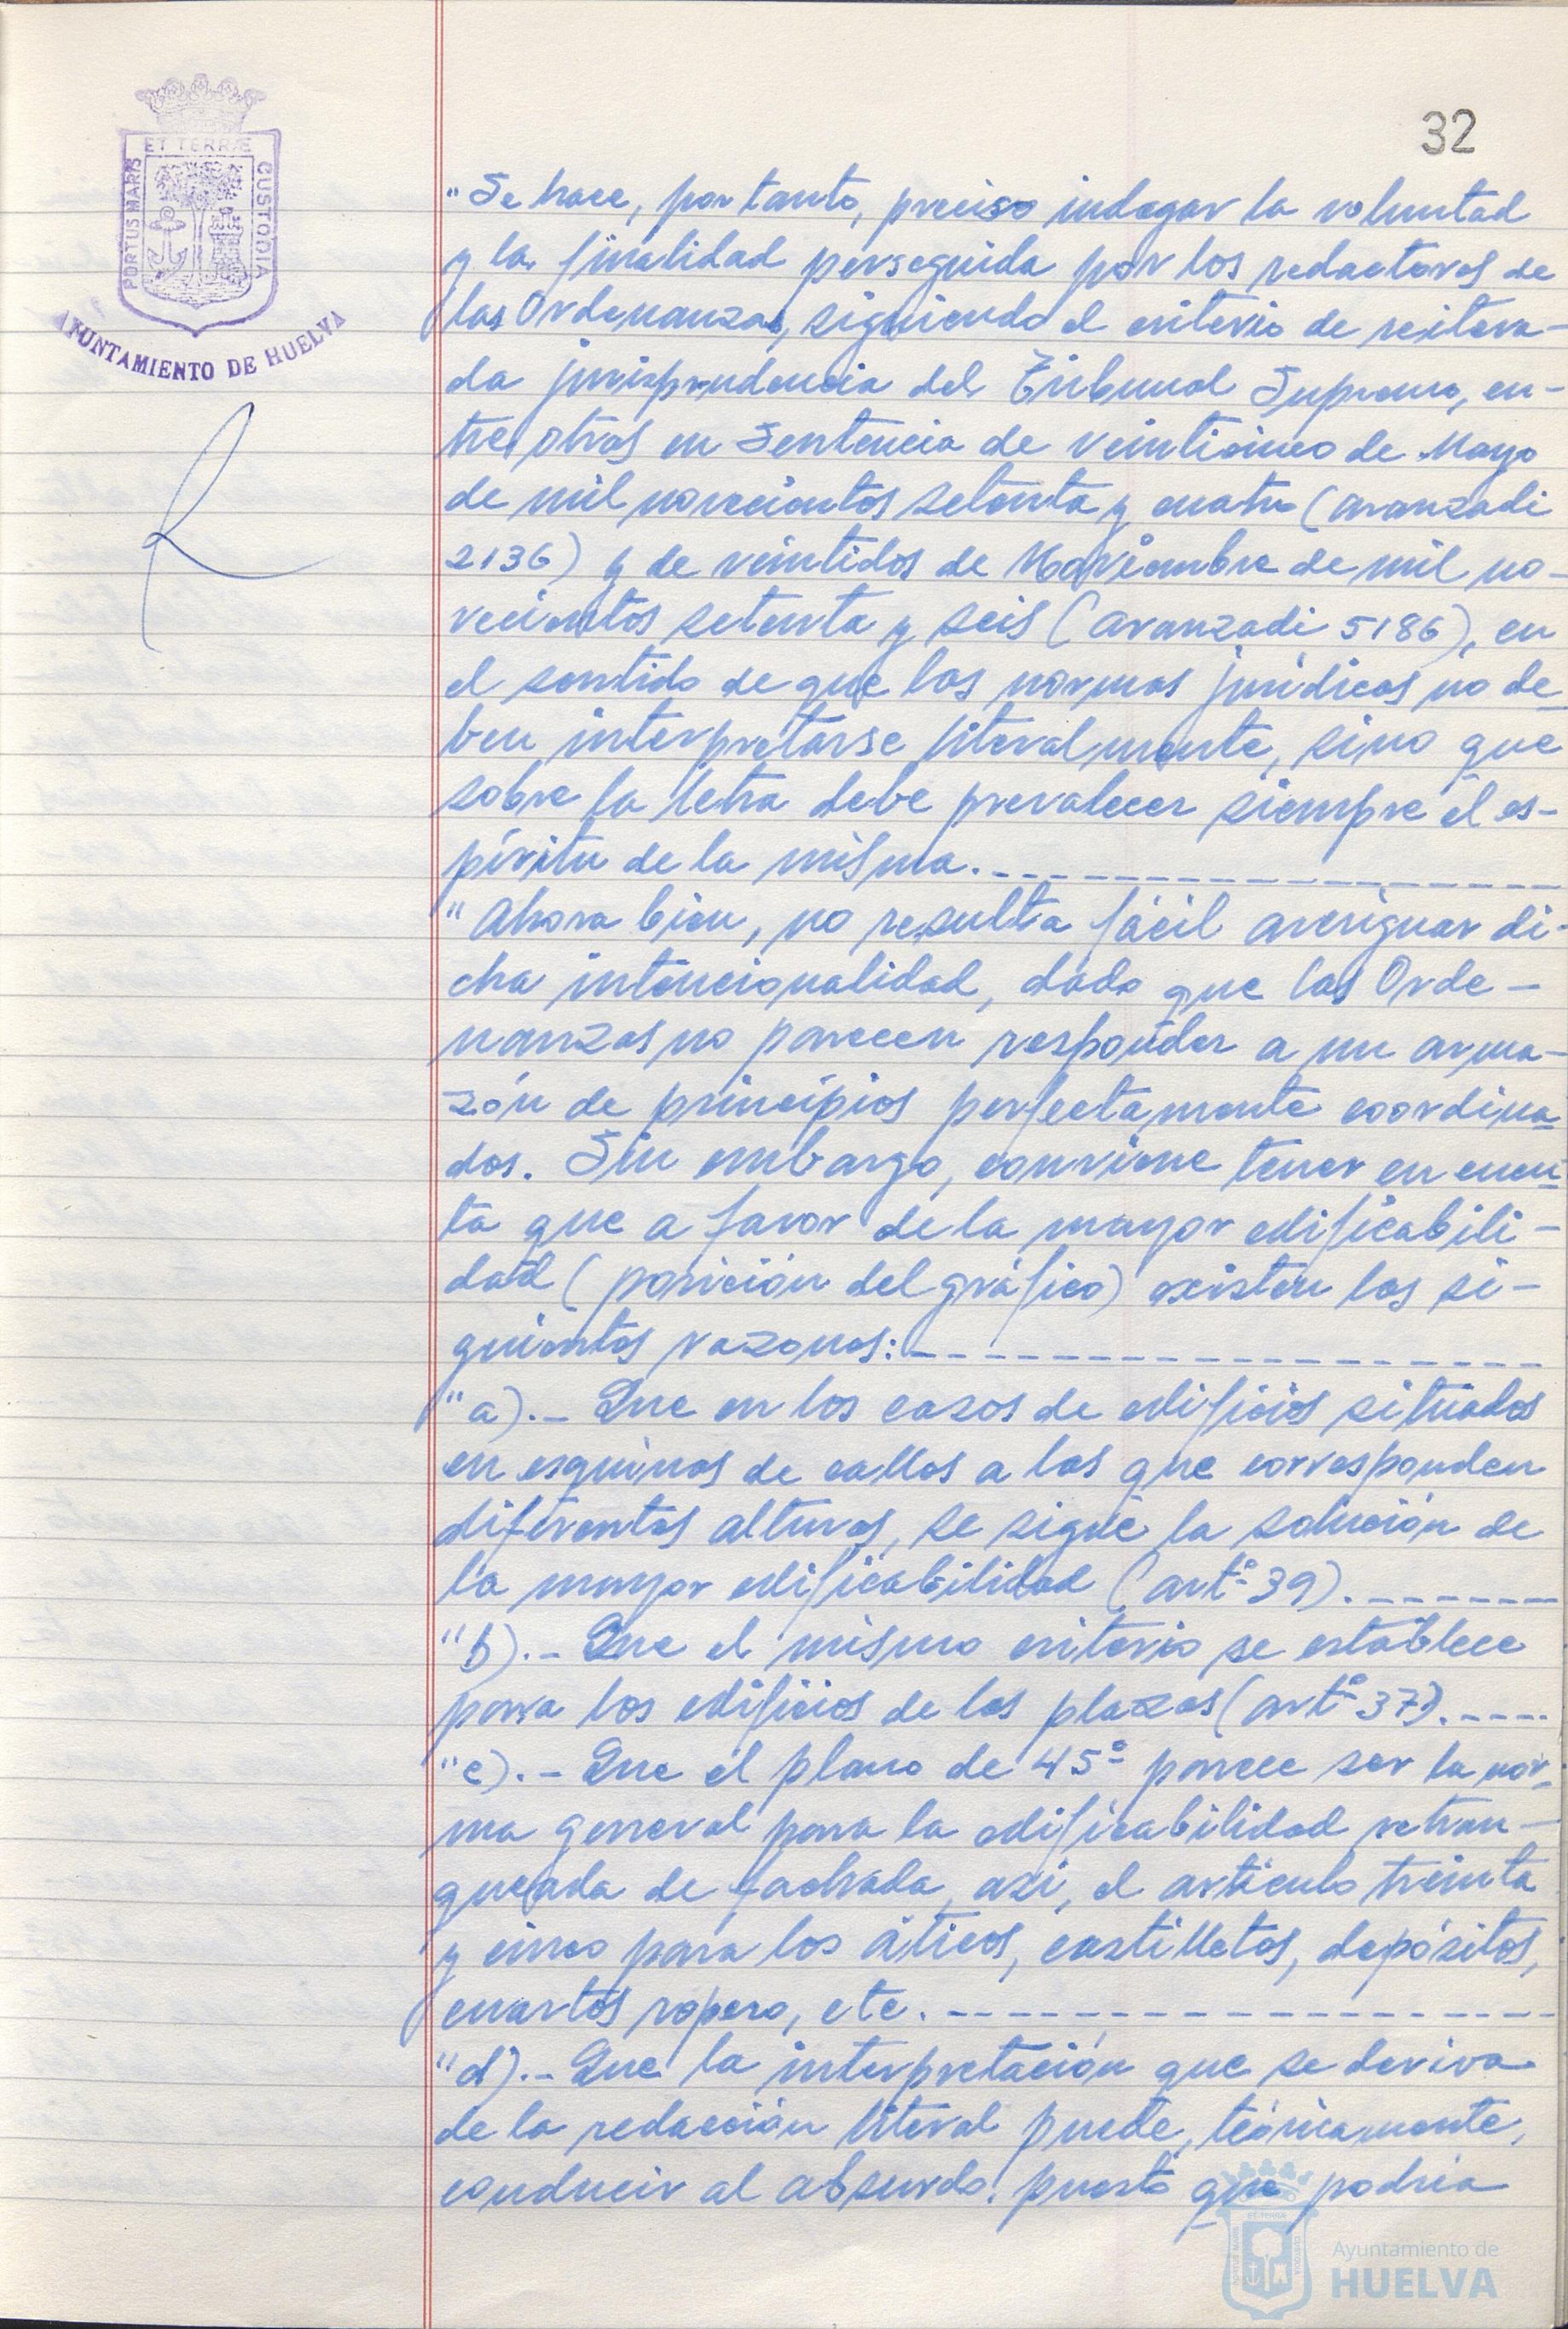 32
ET TERRÆ
PORTUS MARIS
CUSTODIA
AYUNTAMIENTO DE HUELVA
"Se hace, por tanto, preciso indagar la voluntad
y la finalidad perseguida por los redactores de
las Ordenanzas, siguiendo el criterio de reitera-
da jurisprudencia del Tribunal Supremo, en-
tre otras en Sentencia de veinticinco de Mayo
de mil novecientos setenta y cuatro (aranzadi
2136) y de veintidos de Noviembre de mil no-
vecientos setenta y seis (aranzadi 5186), en
el sentido de que las normas jurídicas no de-
ben interpretarse literalmente, sino que
sobre la letra debe prevalecer siempre el es-
píritu de la misma.
"Ahora bien, no resulta fácil averiguar di-
cha intencionalidad, dado que las Orde-
nanzas no parecen responder a un arma-
zón de principios perfectamente coordina-
dos. Sin embargo, conviene tener en cuen-
ta que a favor de la mayor edificabili-
dad (posición del gráfico) existen las si-
guientes razones:
"a).- Que en los casos de edificios situados
en esquinas de calles a las que corresponden
diferentes alturas, se sigue la solución de
la mayor edificabilidad (artº 39).
"b).- Que el mismo criterio se establece
para los edificios de las plazas (artº 37).
"c).- Que el plano de 45º parece ser la nor-
ma general para la edificabilidad retran-
queada de fachada, así, el artículo treinta
y cinco para los áticos, castilletes, depósitos,
cuartos ropero, etc.
"d).- Que la interpretación que se deriva
de la redacción literal puede, teóricamente,
conducir al absurdo, puesto que podría
Ayuntamiento de
HUELVA